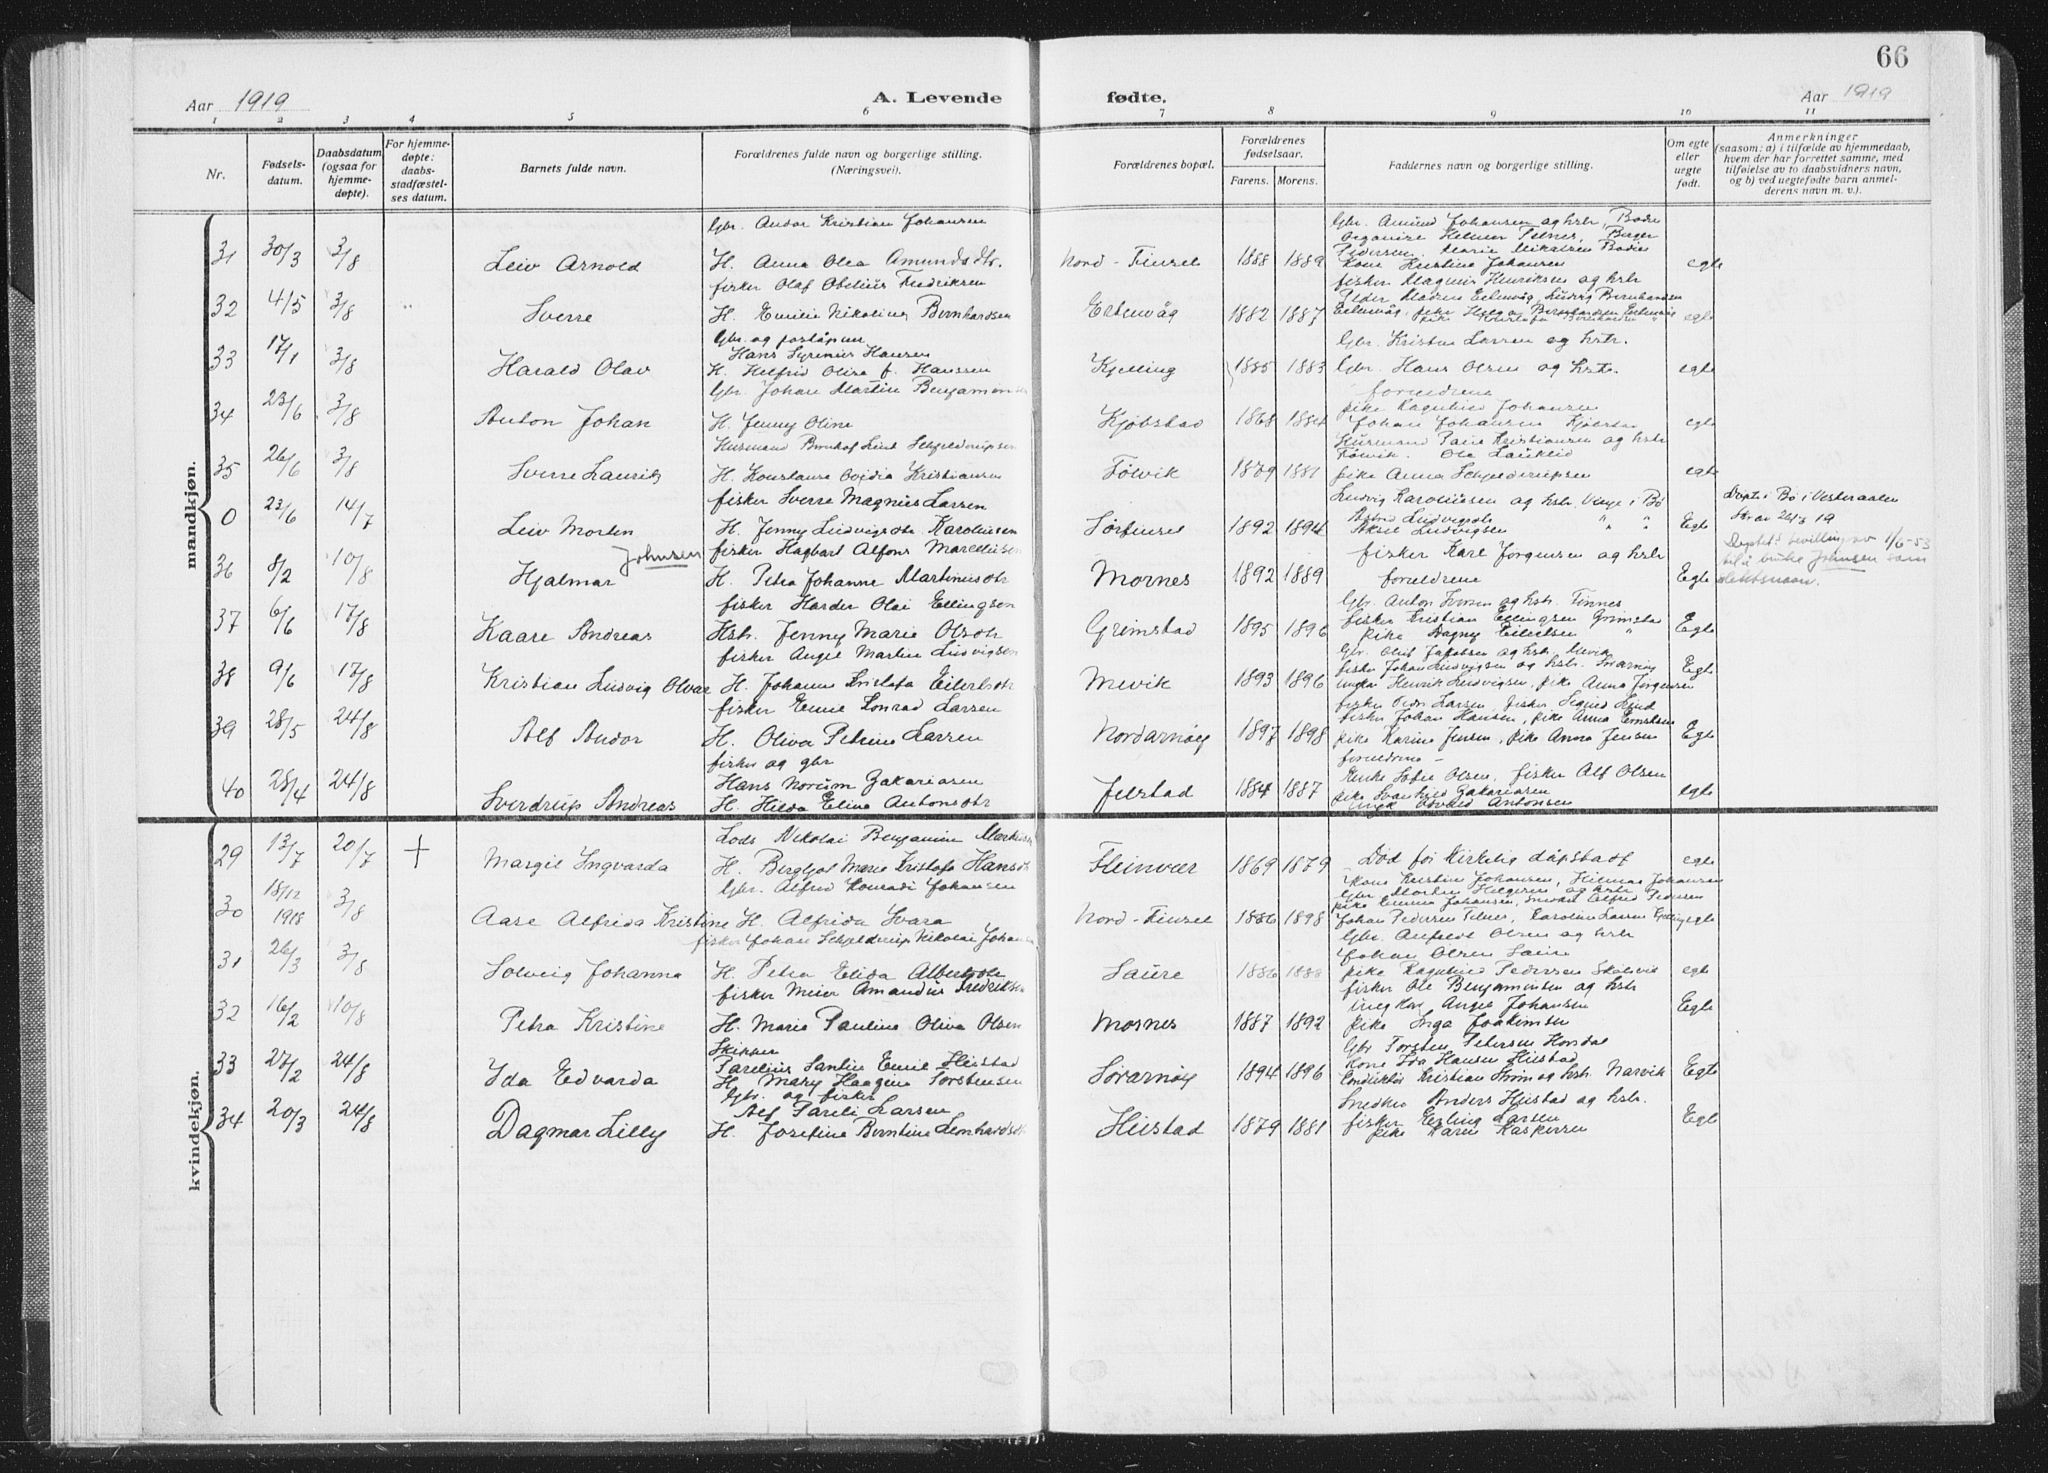 66
Aar 1919
A. Levende fødte.
Aar 1919
1 2 3 4 5 6 7 8 9 10 11
Nr.
Fødselsdatum.
Daabsdatum (ogsaa for hjemmedøpte).
For hjemmedøpte: daabsstadfæstelses datum.
Barnets fulde navn.
Forældrenes fulde navn og borgerlige stilling. (Næringsvei).
Forældrenes bopæl.
Forældrenes fødselsaar.
Farens. Morens.
Faddernes navn og borgerlige stilling.
Om egte eller uegte født.
Anmerkninger
(saasom: a) i tilfælde av hjemmedaab,
hvem der har forrettet samme, med
tilføielse av to daabsvidners navn,
og b) ved uegtefødte barn anmel-
derens navn m. v.).
mandkjøn.
Gbr. Andor Kristian Johansen
31 30/3 3/8 Leiv Arnold H. Anna Olea Amundsdtr. Nord-Finset 1888 1889 egte
Gbr. Amund Johansen og hstr, Bodø
Kone Kristine Johansen
fisker Olaf Obelius Fredriksen
32 4/5 3/8 " Sverre H. Emilie Nikoline Bernhardsen Estenvåg 1882 1887 egte
fisker Magnus Henriksen og hstr
Gbr. og poståpner
Hans Syrenius Hansen
33 17/1 3/8 Harald Olav H. Helfrid Olise f. Hanssen Kjelling 1885 1883 egte
Gbr. Kristen Larsen og hstr.
Gbr. Hans Olsen og hstr.
foreldrene
Gbr. Johan Martin Benjaminsen
34 23/6 3/8 Anton Johan H. Jenny Oline Kjøbstad 1868 1884 egte
pike Ragnhild Johansen
Johan Johansen
Husmand Schjelderupsen
35 26/6 3/8 Sverre Lauritz H. Konstanse Ovidia Kristiansen Følvik 1879 1881 egte
Husmand Paul Kristiansen og hstr
pike Anna Schjelderupsen
fisker Sverre Magnus Larsen
0 23/6 14/7 Leiv Morten H. Jenny Ludvigsdtr Karoliusen Sørfinset 1892 1894 Egte
Ludvig Karoliusen og hstr. i Bø
Astrid Ludvigsdtr " "
Aksel Ludvigsen
Døpt i Bø i Vesteraalen
fisker Hagbart Alfons Marcelliusen
36 8/2 10/8 Hjalmar Johnsen H. Petra Johanne Martinusdtr Mornes 1892 1889 Egte
fisker Karl Jørgensen og hstr
foreldrene
bevilling av 1/6-53
til å bruke Johnsen som
slektsnavn.
fisker Harder Olai Ellingsen
37 6/6 17/8 Kaare Andreas Hstr. Jenny Marie Olsdtr Grimstad 1895 1896 Egte
Gbr. Anton Iversen og hstr. Finnes
fisker Kristian Ellingsen Grimstad
pike Dagny Eilertsen "
fisker Angel Martin Ludvigsen
38 9/6 17/8 Kristian Ludvig Olvar H. Johanne Kristofa Eilertsdtr Mevik 1893 1896 Egte
Gbr. Oluf Jakobsen og hstr. Mevik
fisker Johan Ludvigsen og hstr. Sørarnøy
ungkar Henrik Ludvigsen, pike Anna Jørgensen
fisker Emil Konrad Larsen
39 28/5 24/8 Alf Andor H. Oliva Petrine Larsen Nordarnøy 1897 1898 Egte
fisker Johan Hansen, pike Anna
pike Karine Jensen, pike Anna Jensen
foreldrene -
fisker og gbr
Hans Norum Zakariasen
40 28/4 24/8 Sverdrup Andreas H. Hilda Eline Antonsdtr Jelstad 1884 1887 egte
Enke Sofie Olsen, fisker Alf Olsen
pike Svanhild Zakariasen
Antonsen
kvindekjøn.
Lods Nikolai Benjamin
29 13/7 20/7 + Margit Ingvarda H. Bergljot Marie Kristofa Hansdtr Fleinvær 1869 1879 egte
Død før kirkelig dåpstadf
Gbr. Alfred Konradi Johansen
30 18/12 1918 3/8 Aase Alfrida Kristine H. Alfrida Svara Nord-Finset 1886 1898 egte
Kone Kristine Johansen, Hilmar Johansen
Gbr. Morten Helgesen og hstr
fisker Johan Schjelderup Nikolai Johansen
31 26/3 3/8 Solveig Johanna H. Petra Elida Albertsdtr Saure 1886 1888 egte
Gbr. Anfeldt Olsen og hstr
Johan Olsen Saure
pike Ragnhild Pedersen
fisker Meier Amandus Fredriksen
32 16/2 10/8 Petra Kristine H. Marie Pauline Oliva Olsen Mornes 1887 1892 Egte
fisker Ole Benjaminsen og hstr
ungkar Angel Johansen
pike Inga Joakimsen
Skipper
Parelius Santin Emil Heistad
33 27/2 24/8 Ida Edvarda H. Mary Haagine Torstensen Sørarnøy 1894 1896 Egte
Gbr Torsten Petersen Hondal
Kone Ida Hansen Heistad
Konduktør Kristian Strøm og hstr. Narvik
Gbr. og fisker
Alf Pareli Larsen
34 20/3 24/8 Dagmar Lilly H. Josefine Berntine Lenhardsdtr Heistad 1879 1881 Egte
Snedker Anders Heistad og hstr.
fisker Erling Larsen
pike Karen Kaspersen